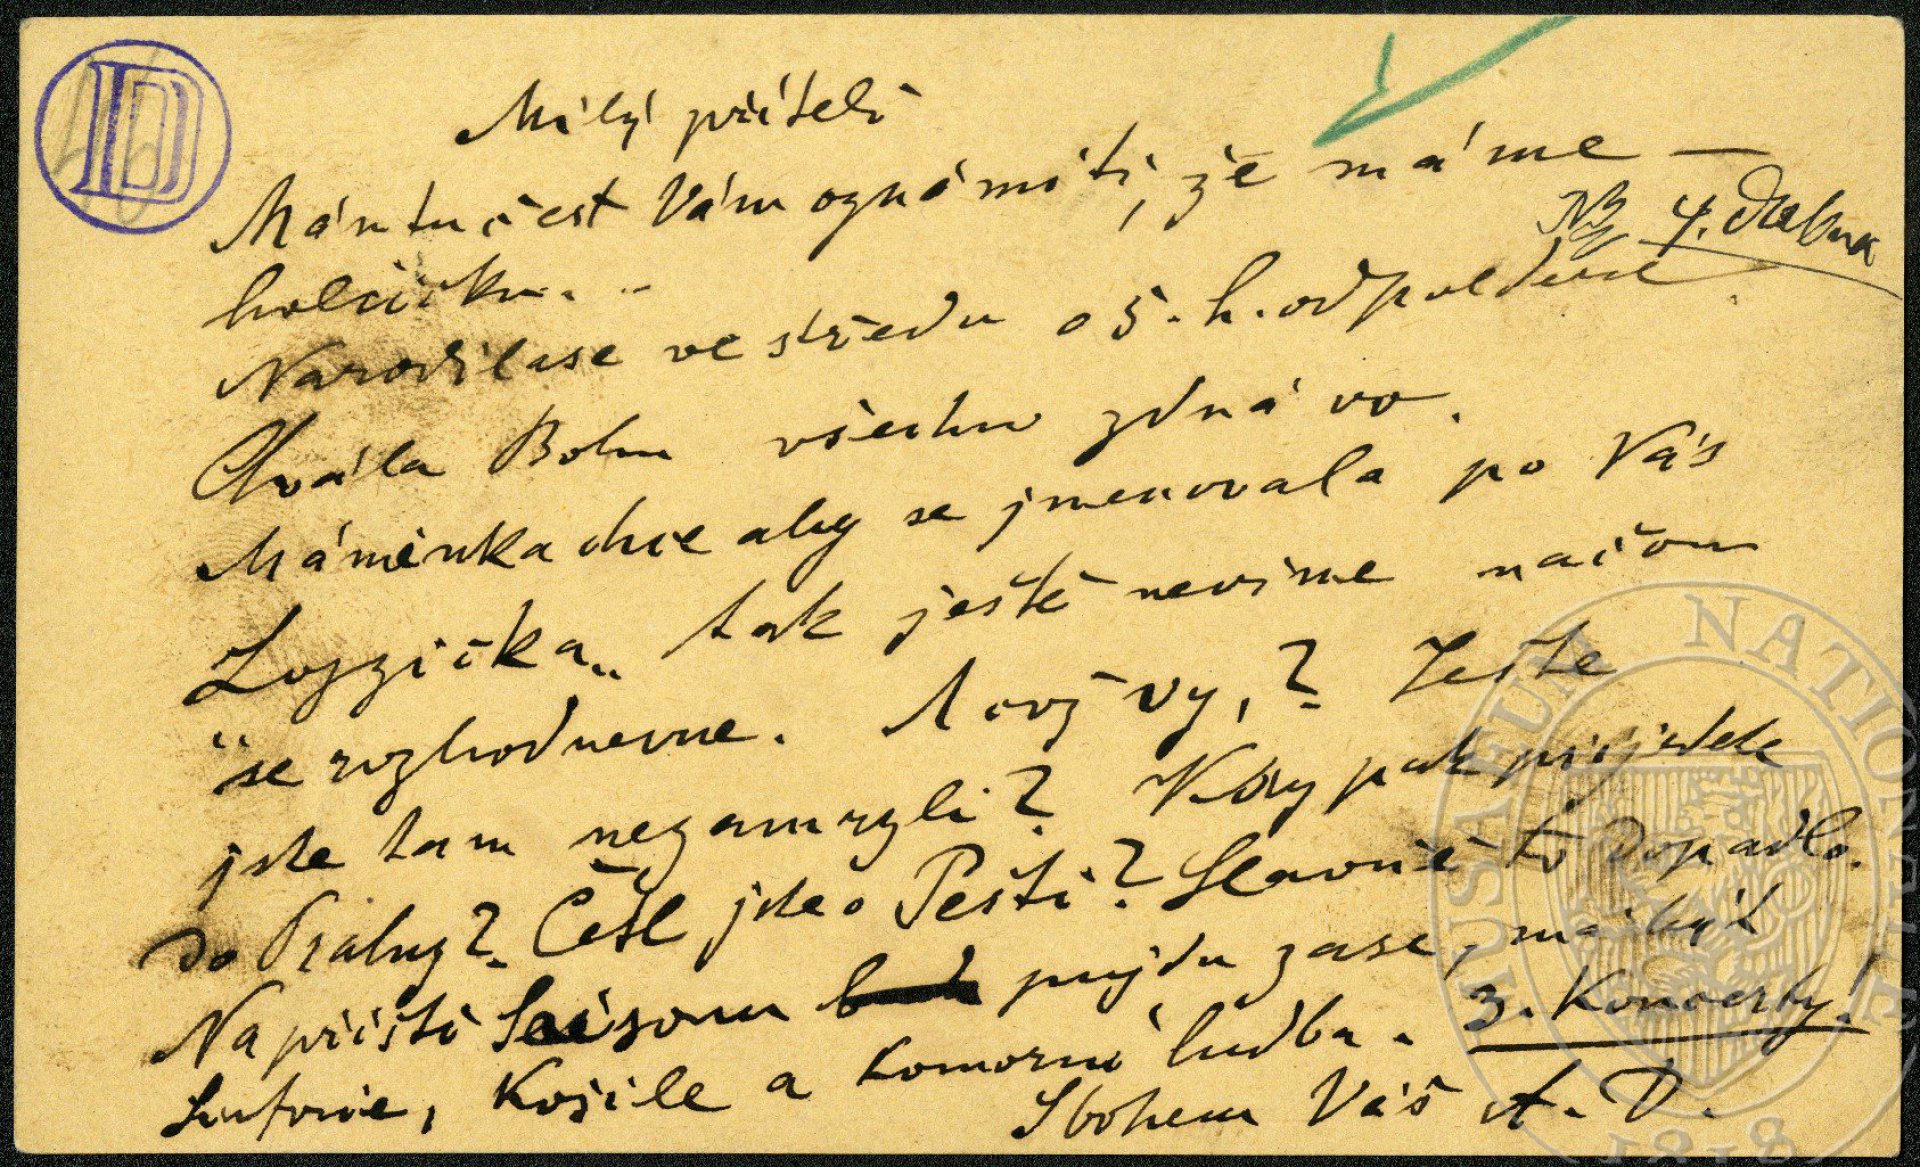 D
Milý příteli
Mám tu čest Vám oznámiti, že máme —
NB 4. dubna
holčičku...
Narodila se ve středu o 5. h. odpoledne
Chvála Bohu všechno zdrávo.
Máminka chce aby se jmenovala po Vás
Lojzička.. tak ještě nevíme na čom
se rozhodneme. A co Vy,? Ješte
jste tam nezamrzli? Kdy pak přijdete
do Prahy? Četl jste o Pešti? Slavně to dopadlo.
Na příští saisonu pujdu zase, má být
3. Koncerty!
Sinfonie, Košile a komorní hudba.
Sbohem Váš A. D.
MUSAEUM NATIONALE
1818